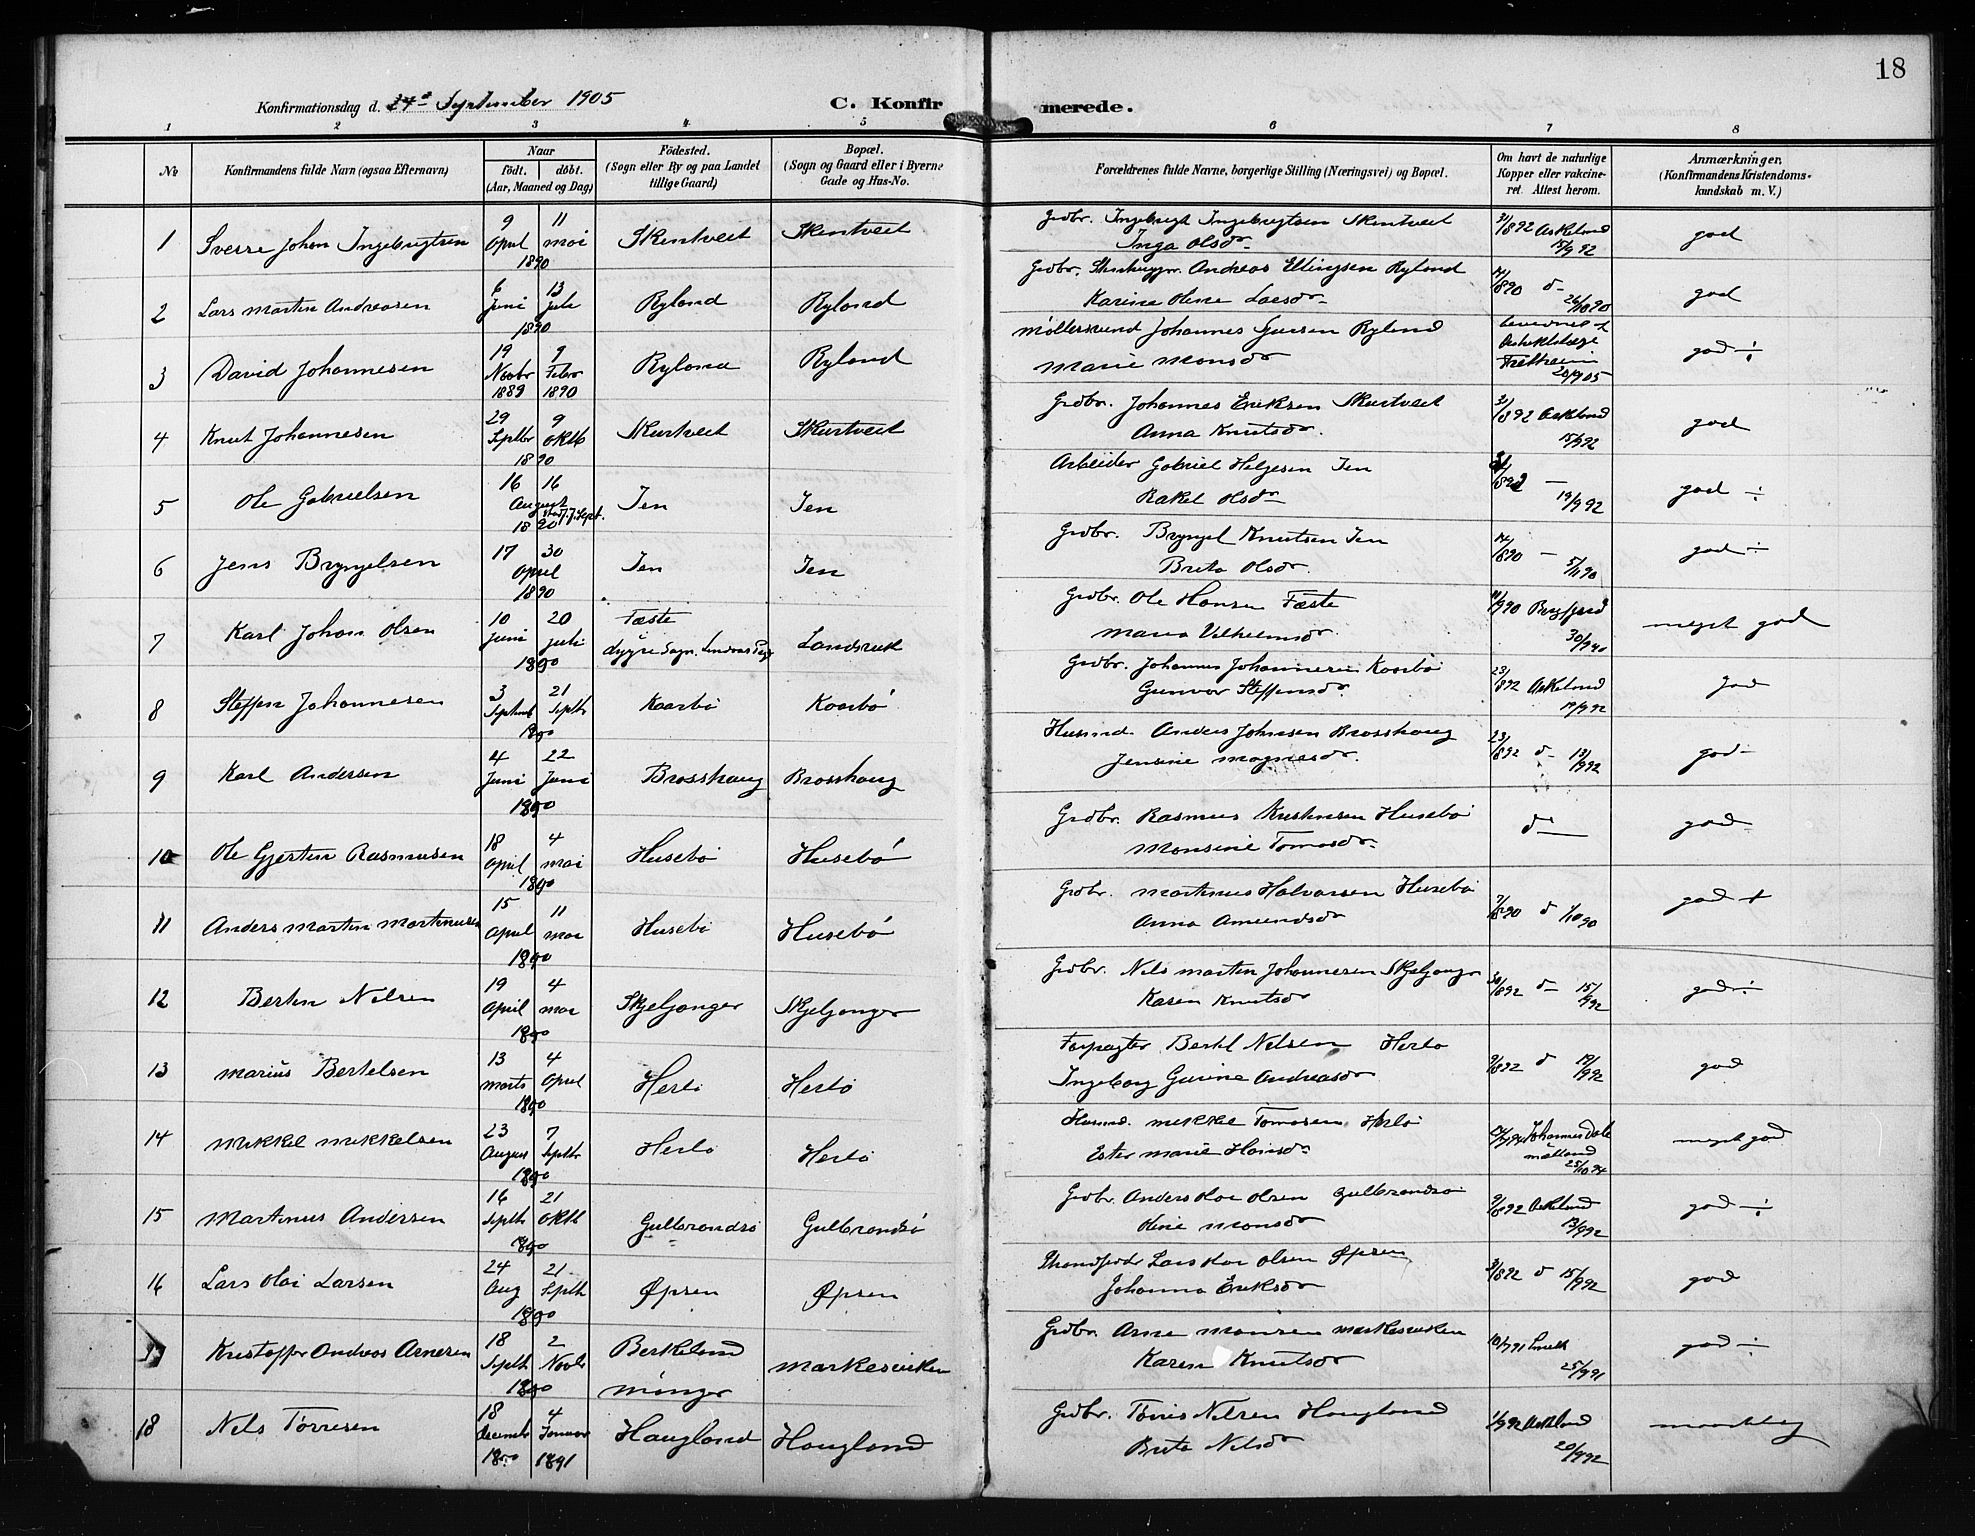 18
Konfirmationsdag d. 24de September 1905
C. Konfirmerede.
1 2 3 4 5 6 7 8
No Konfirmandens fulde Navn (ogsaa Efternavn)
Naar født. døbt. (Aar, Maaned og Dag)
Fødested. (Sogn eller By og paa Landet tillige Gaard)
Bopæl. (Sogn og Gaard eller i Byerne Gade og Hus-No.
Forældrenes fulde Navne, borgerlige Stilling (Næringsvei) og Bopæl.
Om havt de naturlige Kopper eller vakcineret. Attest herom.
Anmærkninger, (Konfirmandens Kristendomskundskab m. V.)
1 Sverre Johan Ingebrigtsen 9 April 11 mai 1890 Skurtveit Skurtveit Grdbr. Ingebrigt Ingebrigtsen Skurtveit
Inga Olsdr. 31/892 Askeland 15/992 god
2 Lars Martin Andreasen 6 Juni 13 Juli 1890 Ryland Ryland Grdbr. Andreas Ellingsen Ryland
Karine Oline Larsdr. /890 d 26/1090 god
3 David Johannesen 19 Novbr 1889 9 Febr 1890 Ryland Ryland Møllersvend Johannes Ryland
Marie Monsdr 20/905 god ÷
4 Knut Johannesen 29 Septbr 9 Oktb 1890 Skurtveit Skurtveit Grdbr. Johannes Eriksen Skurtveit
Anna Knutsdr. 31/892 Askeland 15/992 god
5 Ole Gabrielsen 16 16 August 1890 Ien Ien Arbeider Gabriel Helgesen Ien
Rakel Olsdr /892 — 19/992 god ÷
6 Jens Bryngelsen 17 30 April 1890 Ien Ien Grdbr. Bryngel Knutsen Ien
Brita Olsdr. /890 — 5/1190 god ÷
7 Karl Johan Olsen 10 Juni 20 Juli 1890 Fæste Sogn. Landsvik Grdbr. Ole Hansen Fæste
Maria Vilhelmsdr. 30/990 meget god
8 Steffen Johannesen 3 Septemb 21 Septbr 1890 Kaarbø Kaarbø Grdbr. Johannes Johannesen Kaarbø
Gunvor Steffensdr. 23/892 Askeland 19/992 god
9 Karl Andersen 4 Juni 22 Juni 1890 Brosshaug Brosshaug Husmd. Anders Johnsen Brosshaug
Jensine Magnesdr. 23/892 d 13/992 god
10 Ole Gjertin Rasmusen 18 April 4 mai 1890 Husebø Husebø Grdbr. Rasmus Kristensen Husebø
Monsine Tomasdr. d — god
11 Anders Martin Martinusen 15 April 11 mai 1890 Husebø Husebø Grdbr. Martinus Halvorsen Husebø
Anna Amundsdr 90 d 1/1090 god +
12 Bertin Nilsen 19 April 4 mai 1890 Skjeljanger Skjeljanger Grdbr. Nils Martin Johannesen Skjeljanger
Karen Knutsdr 30/892 d 15/992 god ÷
13 Marius Bertelsen 13 Marts 4 April 1890 Herlø Herlø Forpagter Bertel Nilsen Herlø
Ingeborg Gurine Andreasdr 9/892 d 19/992 god
14 Mikkel Mikkelsen 23 August 7 Septbr 1890 Herlø Herlø Husmd. Mikkel Tomasen Herlø
Ester Marie Hansdr. Johannes Dale 25/1094 meget god
15 Martinus Andersen 16 Septb 21 Oktb 1890 Gulbrandsø Gulbrandsø Grdbr. Anders Olai Olsen Gulbrandsø
Oline Monsdr 9/892 Askeland 13/992 god ÷
16 Lars Olai Larsen 24 Aug 21 Septb 1890 Øpsen Øpsen Lars Olai Olsen Øpsen
Johanna Eriksdr 31/892 d 15/992 god
17 Kristoffer Andreas Arnesen 18 Septb 2 Novb 1890 Berkeland Manger Markesviken Grdbr. Arne Monsen Markesviken
Karen Knutsdr 10/991 25/991 god ÷
18 Nils Tørresen 18 Decemb 1890 4 Januar 1891 Haugland Haugland Grdbr. Tørris Nilsen Haugland
Brita Nilsdr 1/992 Askeland 20/992 maadelig